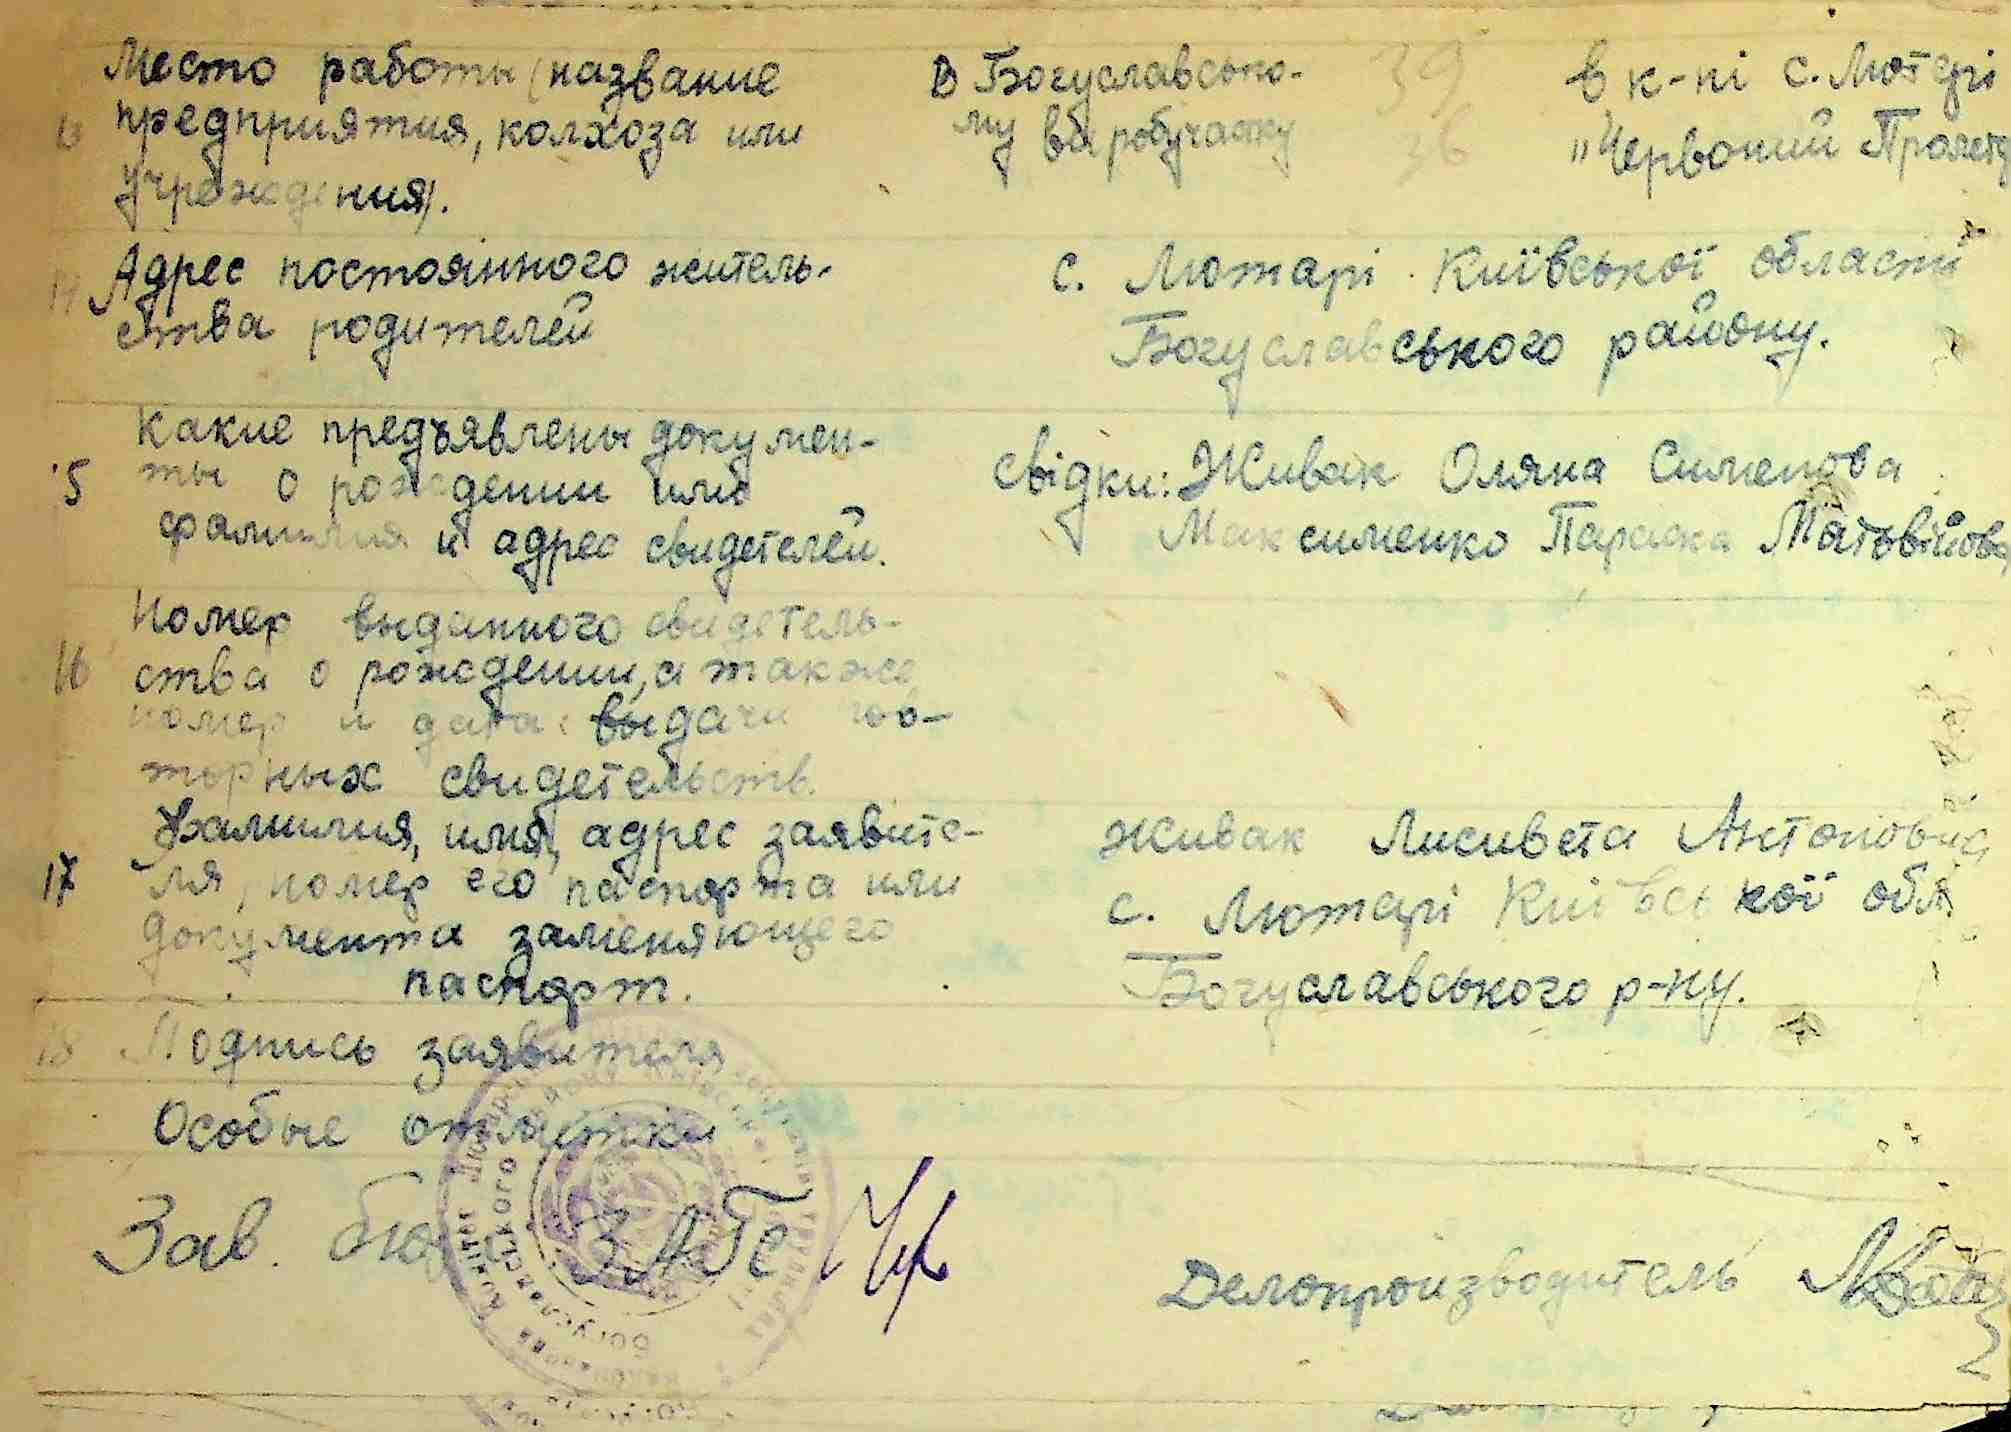 Место работы (название
предприятия, колхоза или
учреждения).
В Богуславсько-
му виробучастку
39
36
в к-пі с. Лютері
"Червоний Пролета
14 Адрес постоянного житель-
ства родителей
с. Лютарі Київської области
Богуславського району.
Какие предъявлены докумен-
15 ты о рождении или
фамилия и адрес свидетелей.
свідки: Живак Оляна Сименова
Максименко Параска Матьвійова
Номер выданного свидетель-
16 ства о рождении, а также
номер и дата выдачи пов-
торных свидетельств.
Фамилия, имя, адрес заявите-
17 ля, номер его паспорта или
документа заменяющего
паспорт.
Живак Лисивета Антоновна
с. Лютарі Київської обл.
Богуславського р-ну.
18 Подпись заявителя
Особые отметки
Зав. бюро ЗАГС
Делопроизводитель